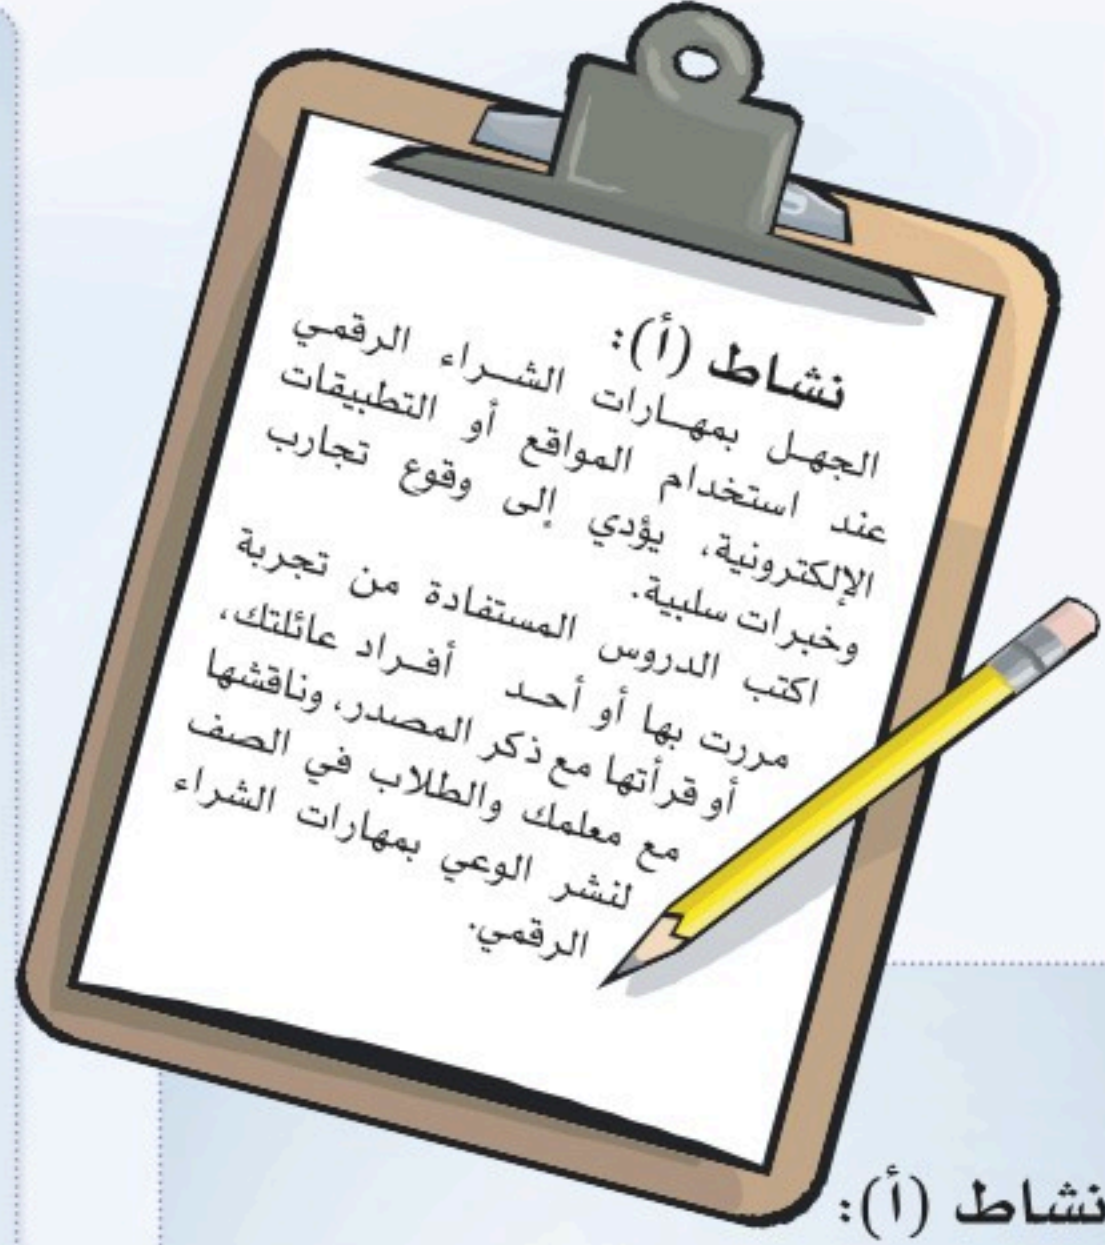 نشاط (أ):
الجهل بمهارات الشراء الرقمي
عند استخدام المواقع أو التطبيقات
الإلكترونية، يؤدي إلى وقوع تجارب
وخبرات سلبية.
اكتب الدروس المستفادة من تجربة
مررت بها أو أحد أفراد عائلتك،
أو قرأتها مع ذكر المصدر، وناقشها
مع معلمك والطلاب في الصف
لنشر الوعي بمهارات الشراء
الرقمي.
نشاط (أ):